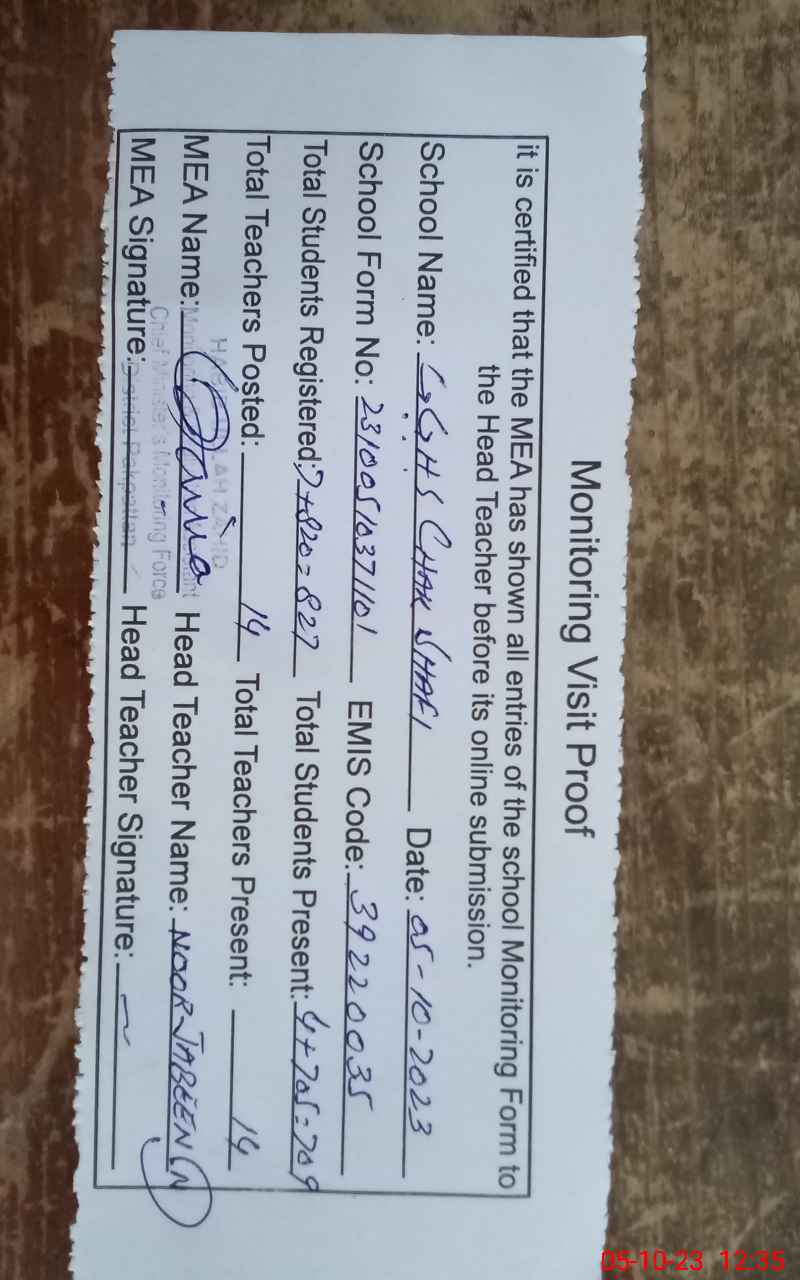 Monitoring Visit Proof
it is certified that the MEA has shown all entries of the school Monitoring Form to
the Head Teacher before its online submission.
School Name: GGHS CHAK SHAFI Date: 05-10-2023
School Form No: 23100510371101 EMIS Code: 39220035
Total Students Registered: 7+820=827 Total Students Present: 4+705=709
Total Teachers Posted: 14 Total Teachers Present: 14
MEA Name: Head Teacher Name: NOOR JABEEN
MEA Signature: Head Teacher Signature:
Chief Minister's Monitoring Force
District Pakpattan
05-10-23 12:35